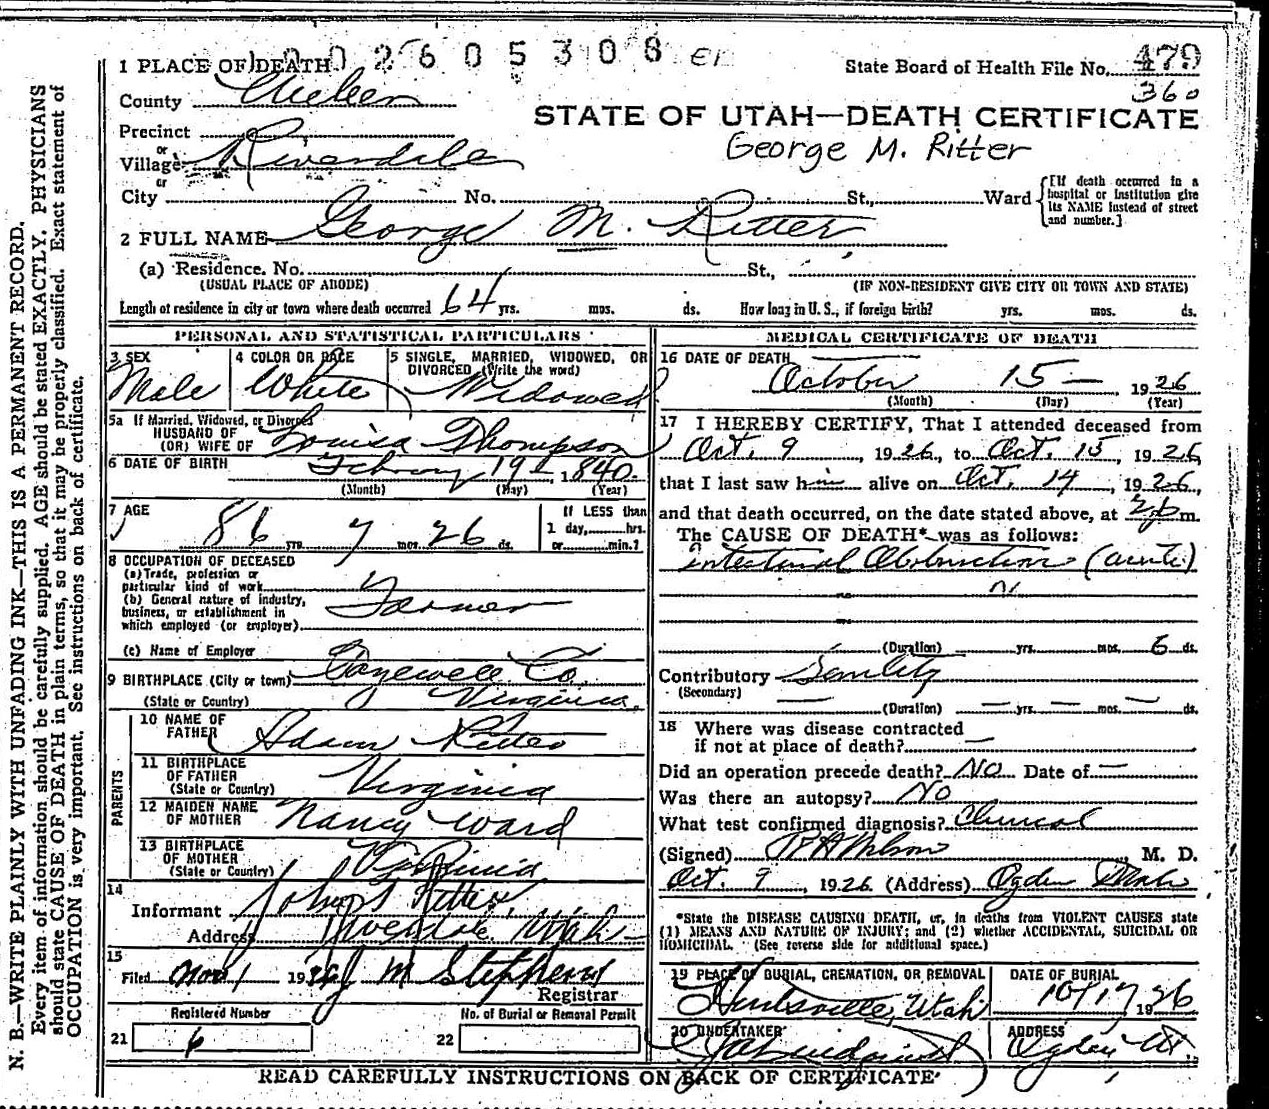 1 PLACE OF DEATH 1002605308
State Board of Health File No. 479
360
County Weber
STATE OF UTAH—DEATH CERTIFICATE
George M. Ritter
Precinct
or
Village Riverdale
or
City No. St., Ward
[If death occurred in a hospital or institution give its NAME instead of street and number.]
2 FULL NAME George M. Ritter
(a) Residence. No. St.,
(USUAL PLACE OF ABODE) (IF NON-RESIDENT GIVE CITY OR TOWN AND STATE)
Length of residence in city or town where death occurred 64 yrs. mos. ds. How long in U. S., if foreign birth? yrs. mos. ds.
PERSONAL AND STATISTICAL PARTICULARS
3 SEX Male
4 COLOR OR RACE White
5 SINGLE, MARRIED, WIDOWED, OR DIVORCED (Write the word) Widowed
5a If Married, Widowed, or Divorced
HUSBAND OF
(OR) WIFE OF Louisa Thompson
6 DATE OF BIRTH February 19 1840
(Month) (Day) (Year)
7 AGE 86 yrs. 7 mos. 26 ds.
If LESS than
1 day, hrs.
or min.?
8 OCCUPATION OF DECEASED
(a) Trade, profession or
particular kind of work
(b) General nature of industry,
business, or establishment in
which employed (or employer) Farmer
(c) Name of Employer
9 BIRTHPLACE (City or town) Tazewell Co.
(State or Country) Virginia
PARENTS
10 NAME OF FATHER Adam Ritter
11 BIRTHPLACE OF FATHER (State or Country) Virginia
12 MAIDEN NAME OF MOTHER Nancy Ward
13 BIRTHPLACE OF MOTHER (State or Country) Virginia
14
Informant John Ritter
Address Riverdale, Utah
15
Filed Nov 1 1926 J M Stephens
Registrar
Registered Number
21 6
No. of Burial or Removal Permit
22
MEDICAL CERTIFICATE OF DEATH
16 DATE OF DEATH
October 15 — 1926
(Month) (Day) (Year)
17 I HEREBY CERTIFY, That I attended deceased from
Oct. 9, 1926, to Oct. 15, 1926
that I last saw him alive on Oct. 14, 1926,
and that death occurred, on the date stated above, at 2 p m.
The CAUSE OF DEATH* was as follows:
Intestinal Obstruction (acute)
(Duration) yrs. mos. 6 ds.
Contributory Senility
(Secondary)
(Duration) — yrs. — mos. — ds.
18 Where was disease contracted
if not at place of death? —
Did an operation precede death? No Date of —
Was there an autopsy? No
What test confirmed diagnosis? Clinical
(Signed) Wilson, M. D.
Oct. 9, 1926 (Address) Ogden Utah
*State the DISEASE CAUSING DEATH, or, in deaths from VIOLENT CAUSES state
(1) MEANS AND NATURE OF INJURY; and (2) whether ACCIDENTAL, SUICIDAL OR
HOMICIDAL. (See reverse side for additional space.)
19 PLACE OF BURIAL, CREMATION, OR REMOVAL
Huntsville, Utah
DATE OF BURIAL
10/17 1926
20 UNDERTAKER
ADDRESS
Ogden Ut
READ CAREFULLY INSTRUCTIONS ON BACK OF CERTIFICATE
N. B.—WRITE PLAINLY WITH UNFADING INK—THIS IS A PERMANENT RECORD.
Every item of information should be carefully supplied. AGE should be stated EXACTLY. PHYSICIANS
should state CAUSE OF DEATH in plain terms, so that it may be properly classified. Exact statement of
OCCUPATION is very important. See instructions on back of certificate.